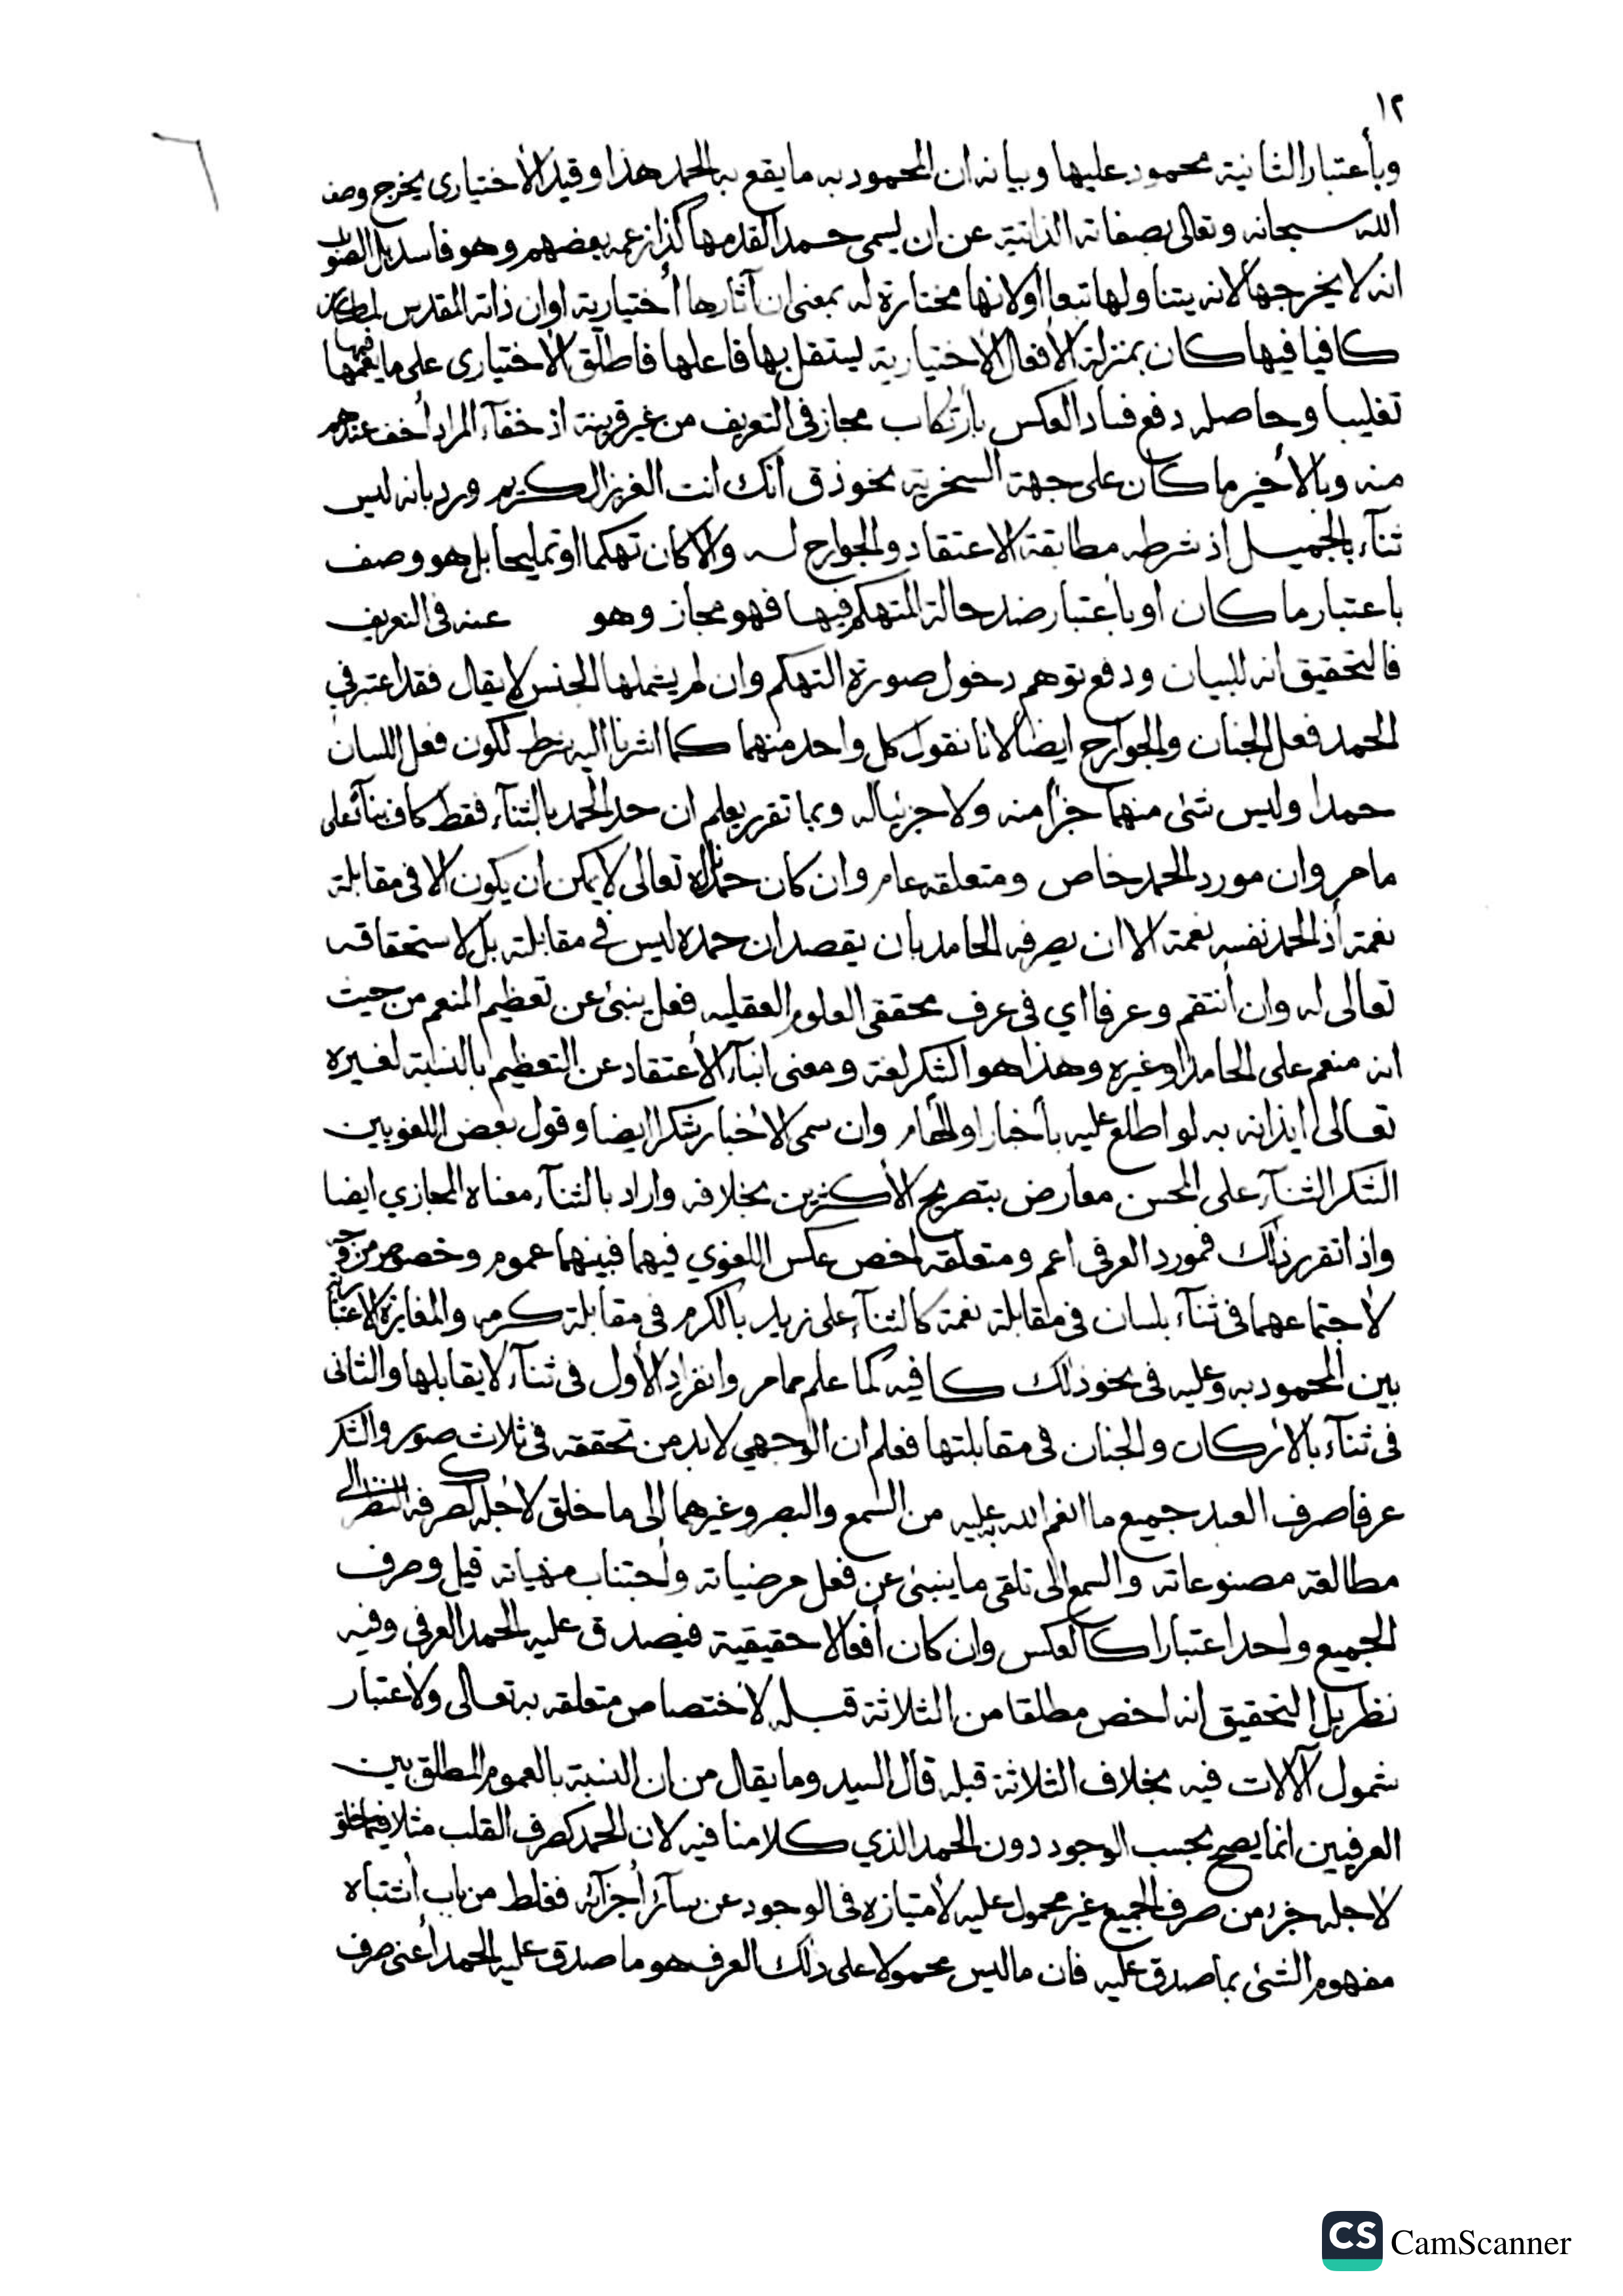 ١٢
وبأعتبار الثانية محمود عليها وبيانه ان المحمود به ما يقع به الحمد هذا وقيد الأختياري يخرج وصف
الله سبحانه وتعالى بصفاته الذاتية عن ان يسمى حمدا لقدمها كذا زعمه بعضهم وهو فاسد بل الصواب
انه لا يخرجها لانه يتناولها تبعا أولانها مختارة له بمعنى ان آثارها أختيارية او ان ذاته المقدس لما كان
كافيا فيها كان بمنزلة الأفعال الاختيارية يستقل بها فاعلها فاطلق الأختياري على ما يعمها
تغليبا وحاصله دفع فساد العكس بأرتكاب مجاز في التعريف من غير قرينة اذ خفآء المراد أخف عندهم
منه وبالأخير ما كان على جهة السخرية نحو ذق أنك انت العزيز الكريم ورد بانه ليس
ثنآء بالجميل اذ شرطه مطابقة الاعتقاد والجوارح له والا كان تهكما او تمليحا بل هو وصف
باعتبار ما كان او بأعتبار ضد حالة المتهكم فيها فهو مجاز وهو عنه في التعريف
فالتحقيق انه للبيان ودفع توهم دخول صورة التهكم وان لم يشملها الجنس لا يقال فقد اعتبر في
الحمد فعل الجنان والجوارح ايضا لانا نقول كل واحد منهما كما اشرنا اليه شرط لكون فعل اللسان
حمدا وليس شئ منهما جزأ منه ولا جزئيا له وبما تقرر يعلم ان حد الحمد بالثنآء فقط كاف بنآء على
ما مر وان مورد الحمد خاص ومتعلقه عام وان كان حمدنا له تعالى لا يمكن ان يكون الا في مقابلة
نعمة أذ الحمد نفسه نعمة الا ان يصرفه الحامد بان يقصد ان حمده ليس في مقابلته بل لاستحقاقه
تعالى له وان أنتقم وعرفا اي في عرف محققي العلوم العقليه فعل ينبئ عن تعظيم المنعم من حيث
انه منعم على الحامد او غيره وهذا هو الشكر لغة ومعنى انبآء الأعتقاد عن التعظيم بالنسبة لغيره
تعالى ايذانه به لو اطلع عليه بأخبار او الهام وان سمي الاخبار شكرا ايضا وقول بعض اللغويين
الشكر الثنآء على المحسن معارض بتصريح الأكثرين بخلافه واراد بالثنآء معناه المجازي ايضا
واذا تقرر ذلك فمورد العرفي اعم ومتعلقه اخص عكس اللغوي فيهما فبينهما عموم وخصوص من وجه
لاجتماعهما في ثنآء بلسان في مقابلة نعمة كالثنآء على زيد بالكرم في مقابلة كرمه والمغايرة الاعتبارية
بين المحمود به وعليه في نحو ذلك كافيه كما علم مما مر وانفراد الأول في ثنآء لا يقابلها والثاني
في ثنآء بالاركان والجنان في مقابلتها فعلم ان الوجهي لابد من تحققه في ثلاث صور والشكر
عرفا صرف العبد جميع ما انعم الله به عليه من السمع والبصر وغيرهما إلى ما خلق لاجله كصرفه النظر الى
مطالعة مصنوعاته والسمع الى تلقي ما ينبئ عن فعل مرضياته واجتناب منهياته قيل وصرف
الجميع واحد اعتبارا كالعكس وان كان أفعالا حقيقية فيصدق عليه الحمد العرفي وفيه
نظر بل التحقيق انه اخص مطلقا من الثلاثة قبله لاختصاص متعلقه به تعالى ولأعتبار
شمول آلآلات فيه بخلاف الثلاثة قبله قال السيد وما يقال من ان النسبة بالعموم المطلق بين
العرفيين انما يصح بحسب الوجود دون الحمد الذي كلامنا فيه لان الحمد كصرف القلب مثلا فيما خلق
لاجله جزء من صرف الجميع غير محمول عليه لأمتيازه في الوجود عن سآئر أجزآئه فغلط من باب أشتباه
مفهوم الشئ بما صدق عليه فان ما ليس محمولا على ذلك الصرف هو ما صدق عليه الحمد أعني صرف
CS CamScanner